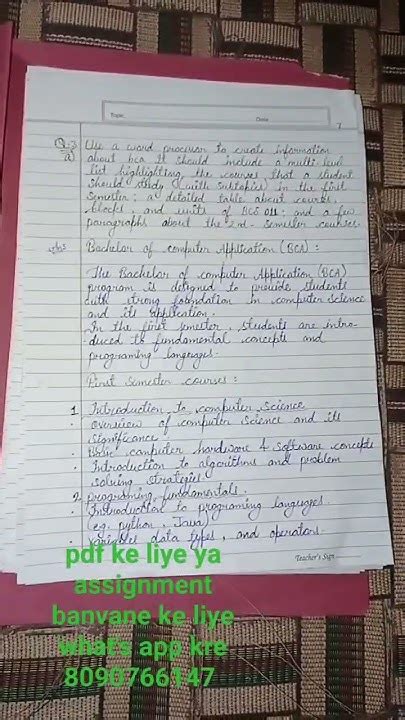 Topic
Date
7
Q.3 Use a word processor to create information
a) about bca it should include a multi-level
list highlighting the courses that a student
should study (with subtopics) in the first
Semester; a detailed table about courses,
blocks, and units of BCS 011; and a few
paragraphs about the 2nd Semester courses.
Ans Bachelor of computer Application (BCA) :
The Bachelor of computer Application (BCA)
program is designed to provide students
with strong foundation in computer science
and its application.
In the first semester, students are intro-
duced to fundamental concepts and
programing languages.
First Semester courses :
1 Introduction to computer science
· overview of computer science and its
significance
· Basic computer hardware & software concepts
· Introduction to algorithms and problem
solving strategies
2 programing fundamentals.
· Introduction to programing languages
(eg. python, Java)
· variables data types, and operators.
Teacher's Sign
pdf ke liye ya
assignment
banvane ke liye
what's app kre
8090766147